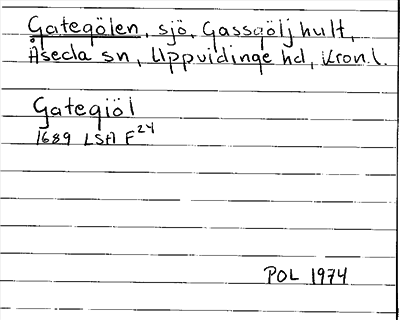 Gategölen, sjö, Gassgöljhult,
Åseda sn, Uppvidinge hd, Kron.l.
Gategiöl
1689 LSA F24
POL 1974